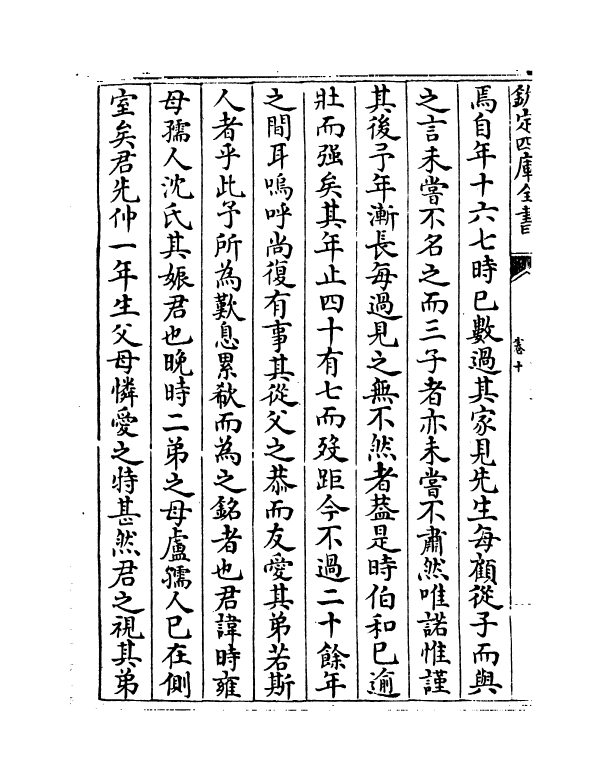 欽定四庫全書
卷十
焉自年十六七時已數過其家見先生每顧從子而與
之言未嘗不名之而三子者亦未嘗不肅然唯諾惟謹
其後予年漸長每過見之無不然者葢是時伯和已逾
壯而强矣其年止四十有七而歿距今不過二十餘年
之間耳嗚呼尚復有事其從父之恭而友愛其弟若斯
人者乎此予所為歎息累欷而為之銘者也君諱時雍
母孺人沈氏其娠君也晚時二弟之母盧孺人已在側
室矣君先仲一年生父母憐愛之特甚然君之視其弟